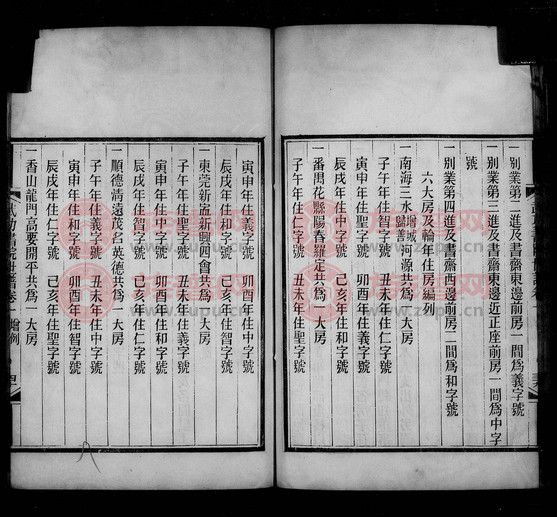 一別業第二進及書齋東邊前房一間爲義字號
一別業第三進及書齋東邊近正座前房一間爲中字
號
一別業第四進及書齋西邊前房一間爲和字號
六大房及輪年住房編列
一南海三水增城歸善河源共爲一大房
子午年住智字號 丑未年住仁字號
寅申年住聖字號 卯酉年住義字號
辰戌年住中字號 己亥年住和字號
一番禺花縣陽春羅定共爲一大房
子午年住仁字號 丑未年住聖字號
寅申年住義字號 卯酉年住中字號
辰戌年住和字號 己亥年住智字號
一東莞新寧新興四會共爲一大房
子午年住聖字號 丑未年住義字號
寅申年住中字號 卯酉年住和字號
辰戌年住智字號 己亥年住仁字號
一順德清遠茂名英德共爲一大房
子午年住義字號 丑未年住中字號
寅申年住和字號 卯酉年住智字號
辰戌年住仁字號 己亥年住聖字號
一香山龍門高要開平共爲一大房